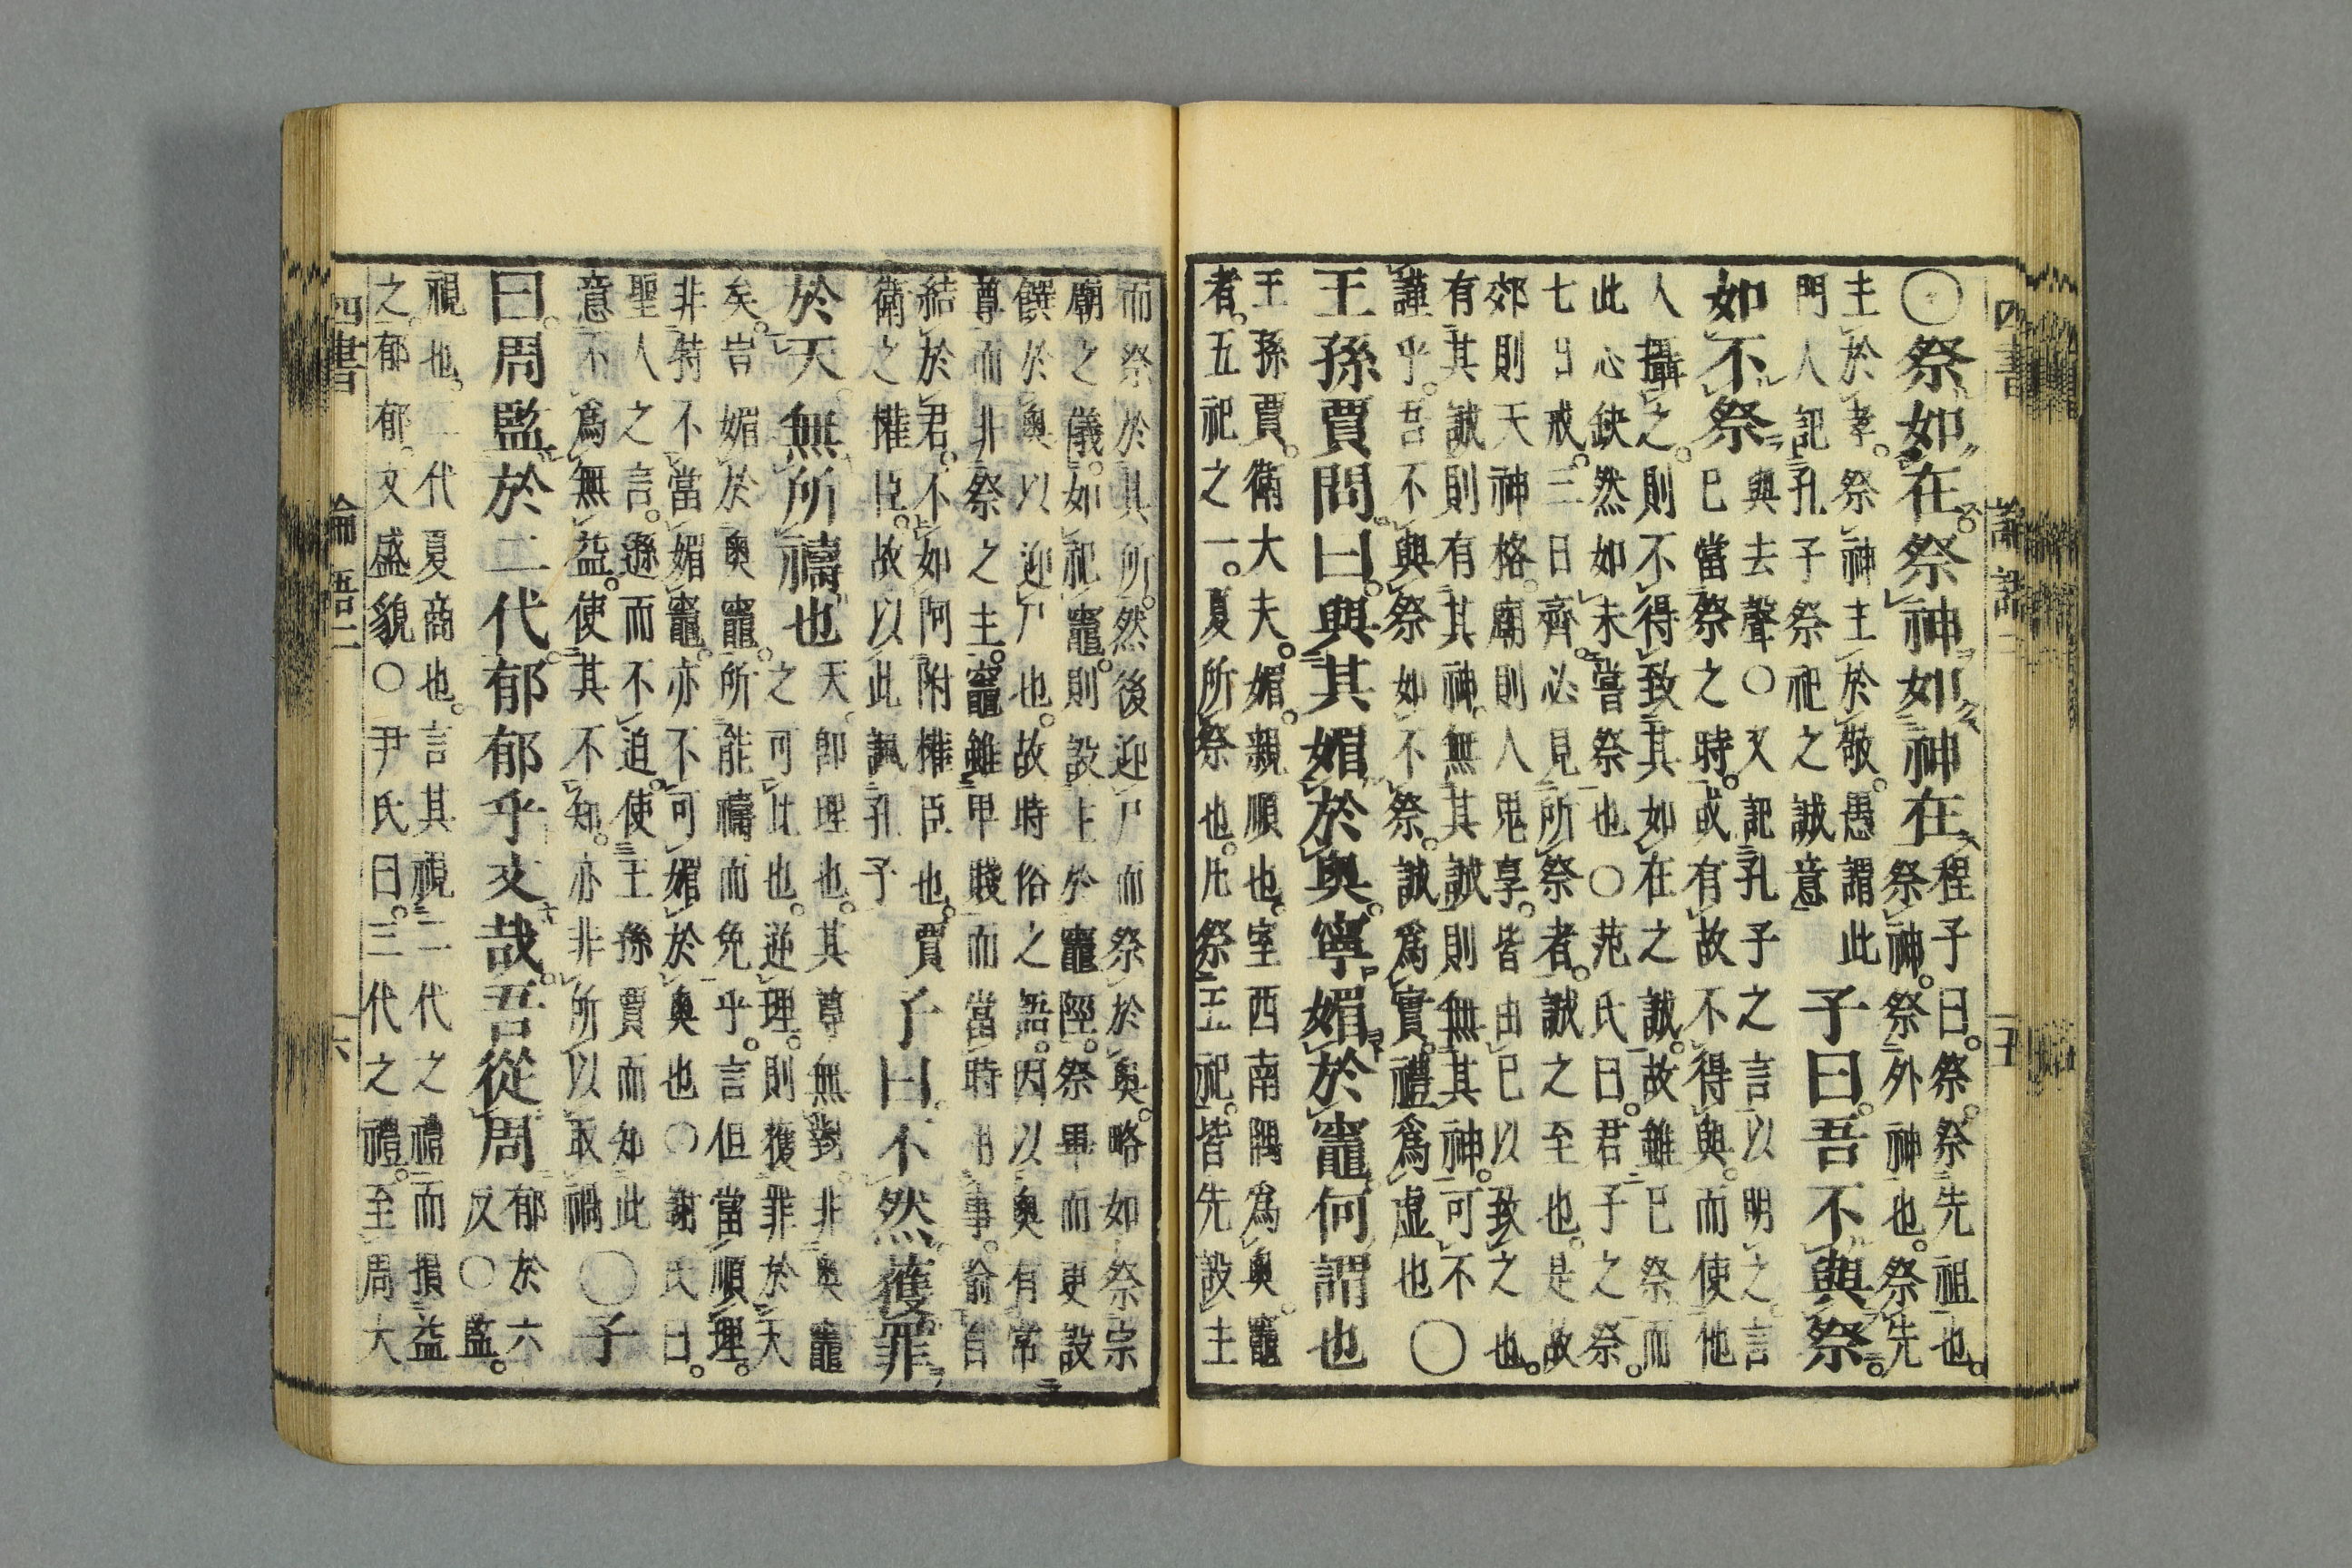 四書 論語二 五
○祭如在。祭神如神在
程子曰。祭。祭先祖也。
祭神。祭外神也。祭先
主於孝。祭神主於敬。愚謂此
門人記孔子祭祀之誠意
子曰。吾不與祭。
如不祭
與去聲○又記孔子之言以明之。言
已當祭之時。或有故不得與。而使他
人攝之。則不得致其如在之誠。故雖已祭而
此心缺然如未嘗祭也○范氏曰。君子之祭。
七日戒。三日齊。必見所祭者。誠之至也。是故
郊則天神格。廟則人鬼享。皆由已以致之也。
有其誠則有其神。無其誠則無其神。可不
謹乎。吾不與祭如不祭。誠爲實。禮爲虛也
○
王孫賈問。曰。與其媚於奧。寧媚於竈何謂也
王孫賈。衞大夫。媚。親順也。室西南隅爲奧。竈
者。五祀之一。夏所祭也。凡祭五祀。皆先設主
而祭於其所。然後迎尸而祭於奧。略如祭宗
廟之儀。如祀竈。則設主於竈陘。祭畢而更設
饌於奧以迎尸也。故時俗之語。因以奧有常
尊而非祭之主。竈雖卑賤而當時用事。喻自
結於君。不如阿附權臣也。賈
衞之權臣。故以此諷孔子
子曰。不然獲罪
於天無所禱也
天。卽理也。其尊無對。非奧竈
之可比也。逆理。則獲罪於天
矣。豈媚於奧竈。所能禱而免乎。言但當順理。
非特不當媚竈。亦不可媚於奧也○謝氏曰。
聖人之言。遜而不迫。使王孫賈而知此
意。不爲無益。使其不知。亦非所以取禍
○子
曰。周監於二代。郁郁乎文哉。吾從周
郁於六
反○監。
視也。二代夏商也。言其視二代之禮而損益
之。郁郁。文盛貌○尹氏曰。三代之禮。至周大
四書 論語二 六